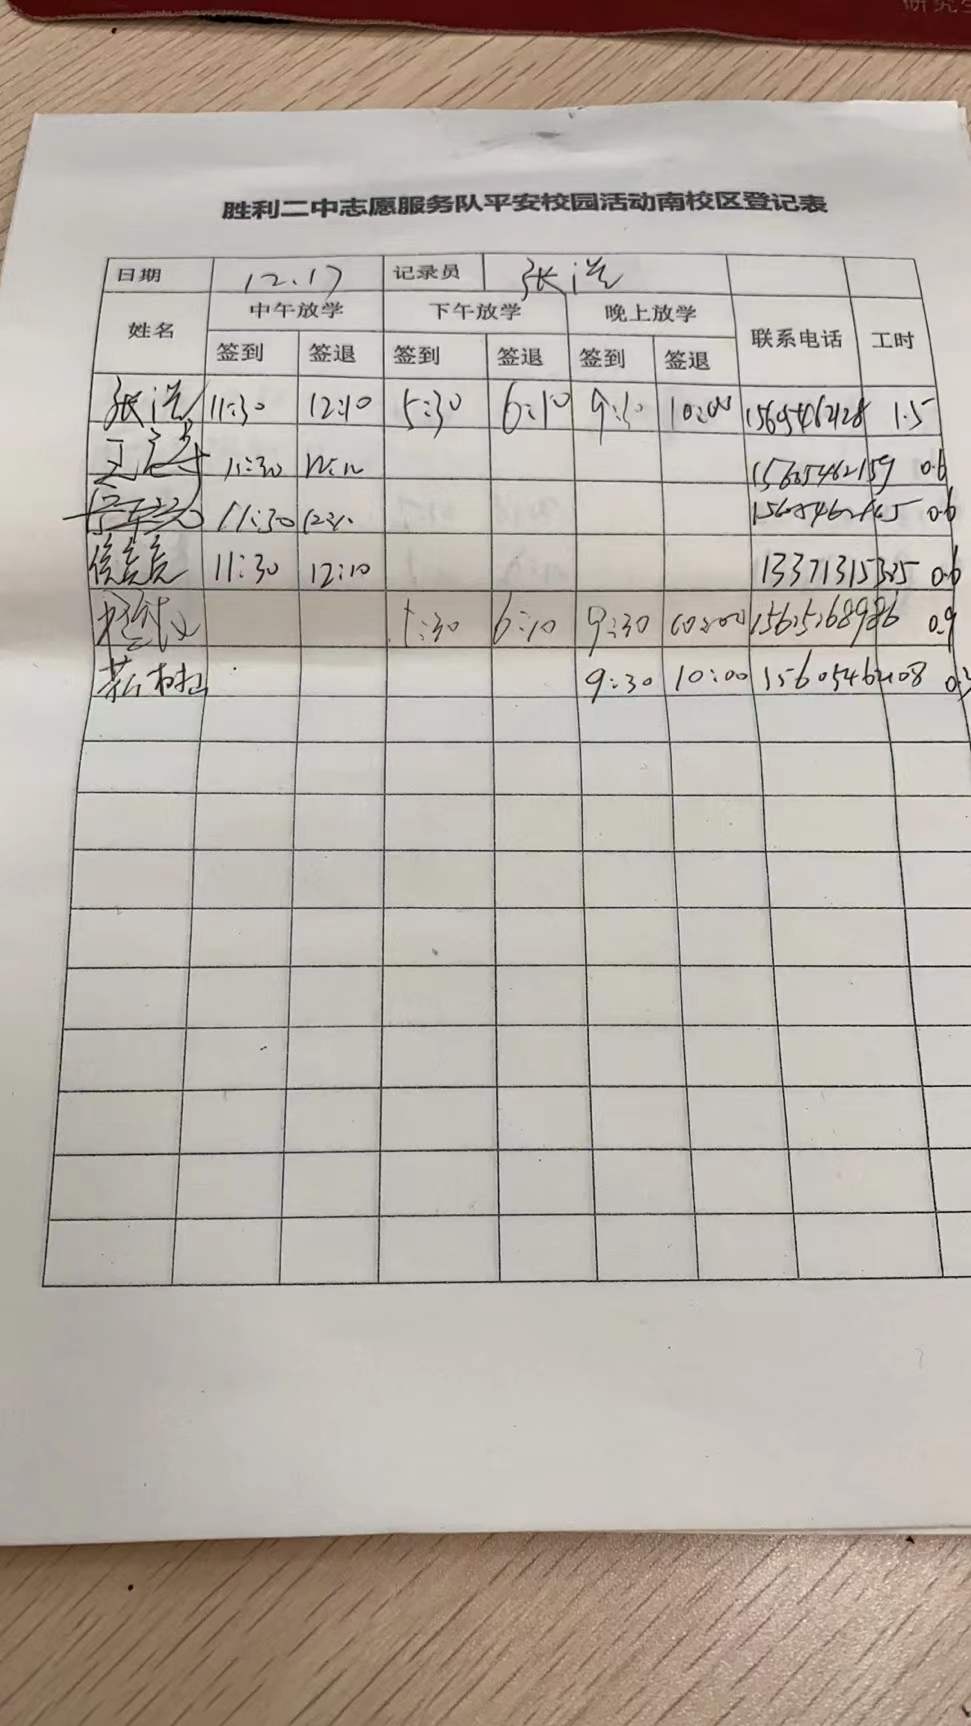 研究生
胜利二中志愿服务队平安校园活动南校区登记表
日期 12.17 记录员 张洋
姓名 中午放学 下午放学 晚上放学 联系电话 工时
签到 签退 签到 签退 签到 签退
张洋 11:30 12:10 5:30 6:10 9:30 10:00 15605462128 1.5
11:30 12:10 15605462159 0.6
11:30 12:10 0.6
侯亮亮 11:30 12:10 13371315325 0.6
5:30 6:10 9:30 10:00 15625268986 0.9
9:30 10:00 15605462108